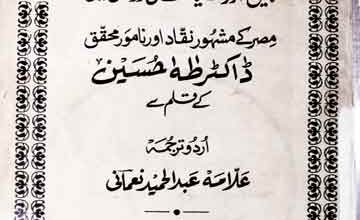 مصر کے مشہور نقاد اور نامور محقق
ڈاکٹر طٰہٰ حسین
کے قلم سے
اردو ترجمہ
علامہ عبدالحمید نعمانی